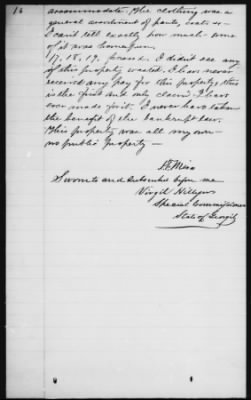 16
accommodate. The clothing was a
general assortment of pants, coats &c
I can't tell exactly how much some
of it was homespun.
17. 18. 19. proved. I did not see any
of this property wasted. I have never
received any pay for this property, this
is the first and only claim I have
ever made for it. I never have taken
the benefit of the bankrupt law.
This property was all my own
no public property —
Sworn to and subscribed before me
Virgil Hillyer
Special Commissioner
State of Georgia